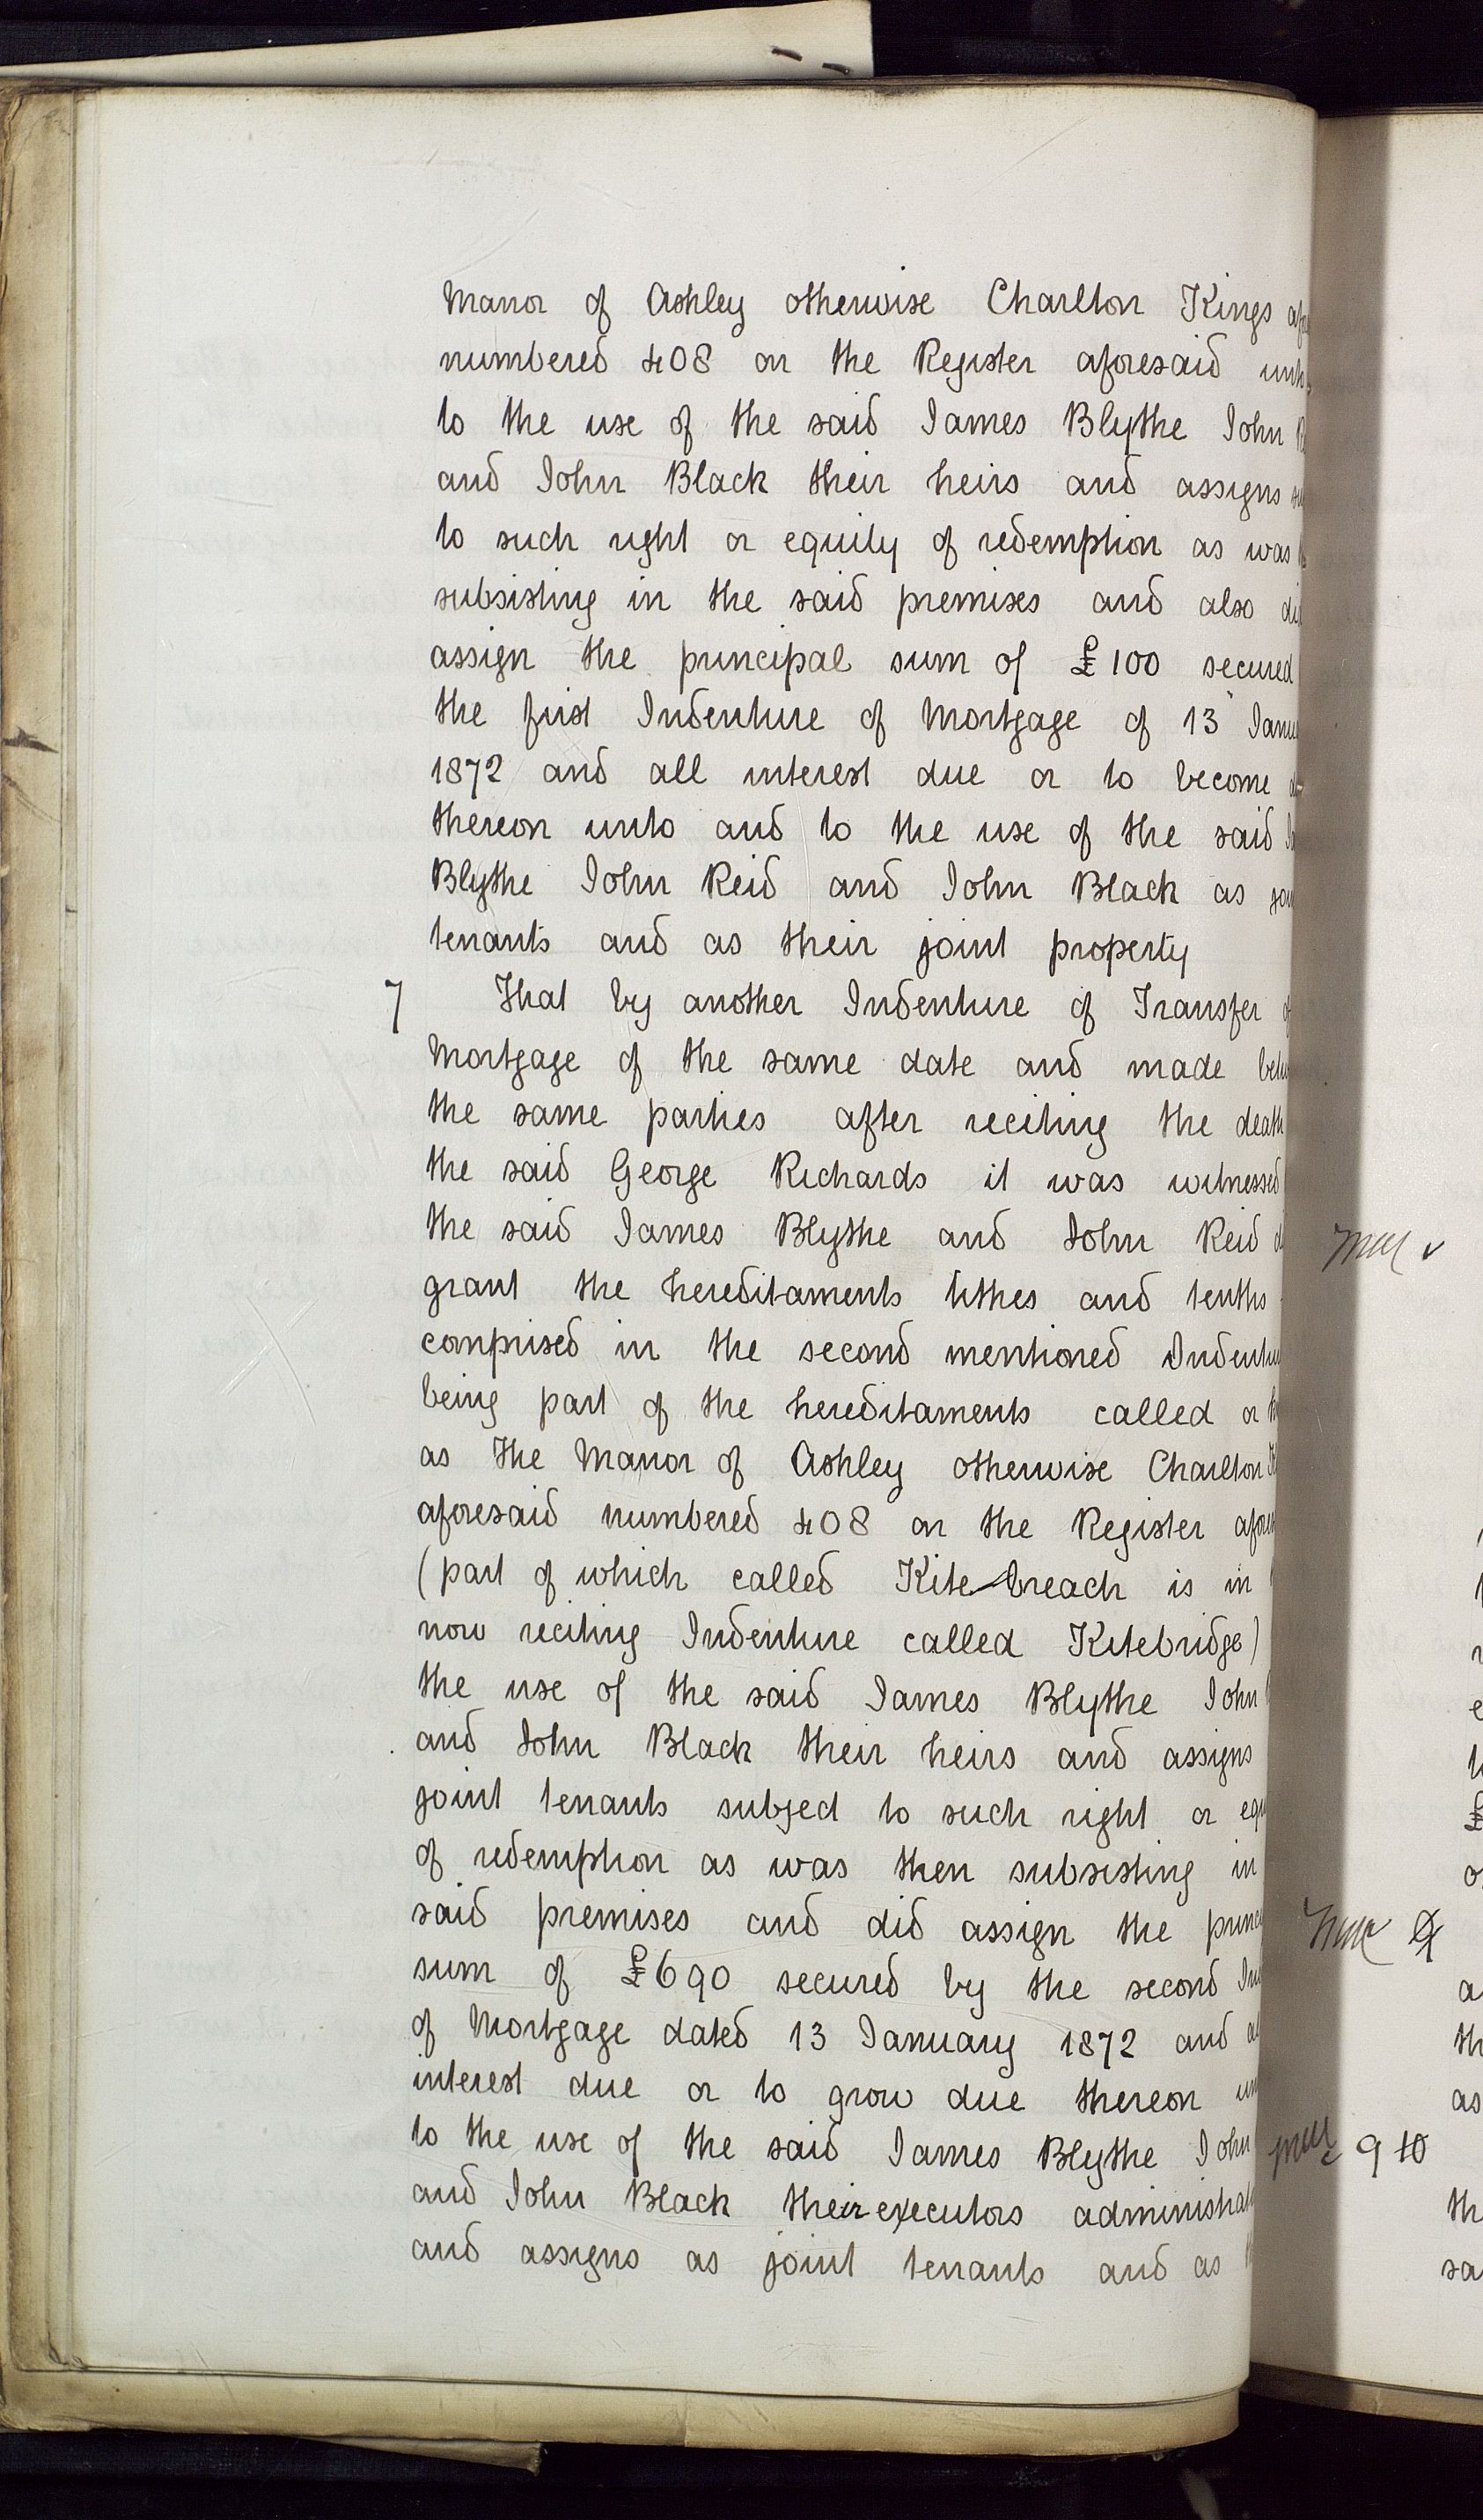 Manor of Ashley otherwise Charlton Kings
numbered 408 on the Register aforesaid
to the use of the said James Blythe John
and John Black their heirs and assigns
to such right or equity of redemption as was
subsisting in the said premises and also
assign the principal sum of £100 secured
the first Indenture of Mortgage of 13
1872 and all interest due or to become
thereon unto and to the use of the said
Blythe John Reid and John Black as
tenants and as their joint property
7 That by another Indenture of Transfer
Mortgage of the same date and made
the same parties after reciting the death
the said George Richards it was witnessed
the said James Blythe and John Reid
grant the hereditaments tithes and tenths
comprised in the second mentioned
being part of the hereditaments called or
as The Manor of Ashley otherwise Charlton
aforesaid numbered 408 on the Register
(part of which called Kite-breach is in
now reciting Indenture called Kitebridge)
the use of the said James Blythe John
and John Black their heirs and assigns
joint tenants subject to such right or
of redemption as was then subsisting in
said premises and did assign the
sum of £690 secured by the second
of Mortgage dated 13 January 1872 and
interest due or to grow due thereon
to the use of the said James Blythe John
and John Black their executors
and assigns as joint tenants and as
9 10